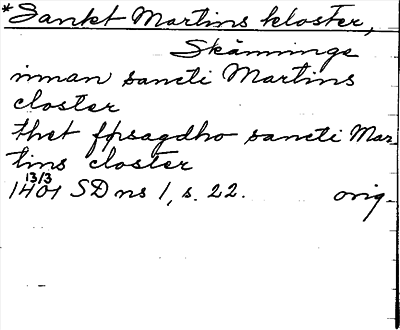 *Sankt Martins kloster,
Skänninge
innan sancti Martins
closter
thet fpsagdho sancti Mar-
tins closter
13/3
1401 SD ns 1, s. 22. orig.